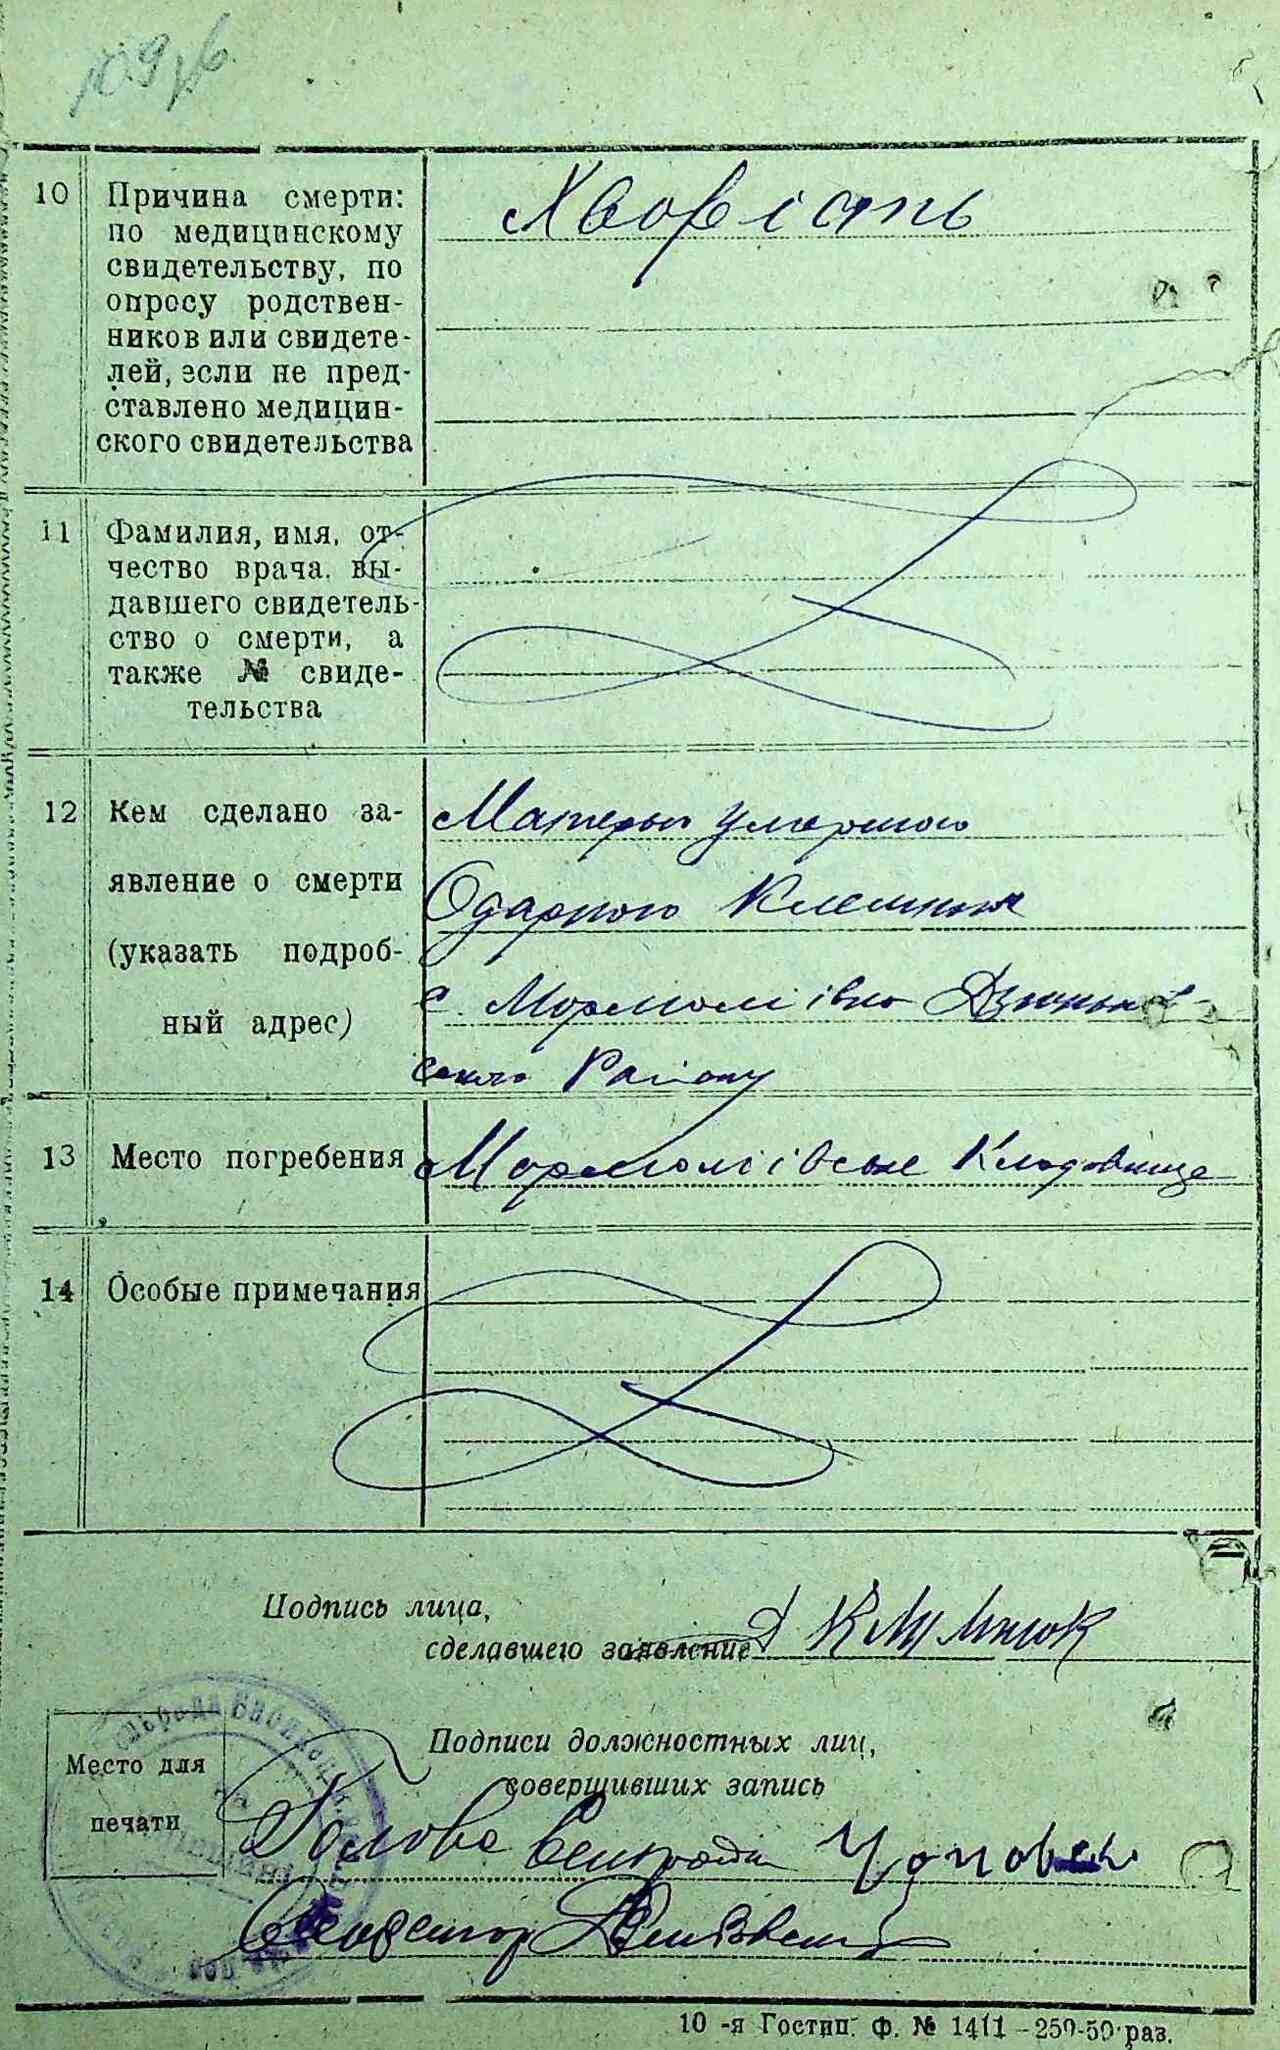 109 зв.
10 Причина смерти:
по медицинскому
свидетельству, по
опросу родствен-
ников или свидете-
лей, если не пред-
ставлено медицин-
ского свидетельства
Хворість
11 Фамилия, имя, от-
чество врача, вы-
давшего свидетель-
ство о смерти, а
также № свиде-
тельства
12 Кем сделано за-
явление о смерти
(указать подроб-
ный адрес)
Матерью умершого
Одаркою
с. Мормоліївка
Району
13 Место погребения
Мормоліївське Кладовище
14 Особые примечания
Подпись лица,
сделавшего заявление
Подписи должностных лиц,
совершивших запись
Место для
печати
Голова Сельради
Секретар
10-я Гостип. Ф. № 1411-250-50 раз.